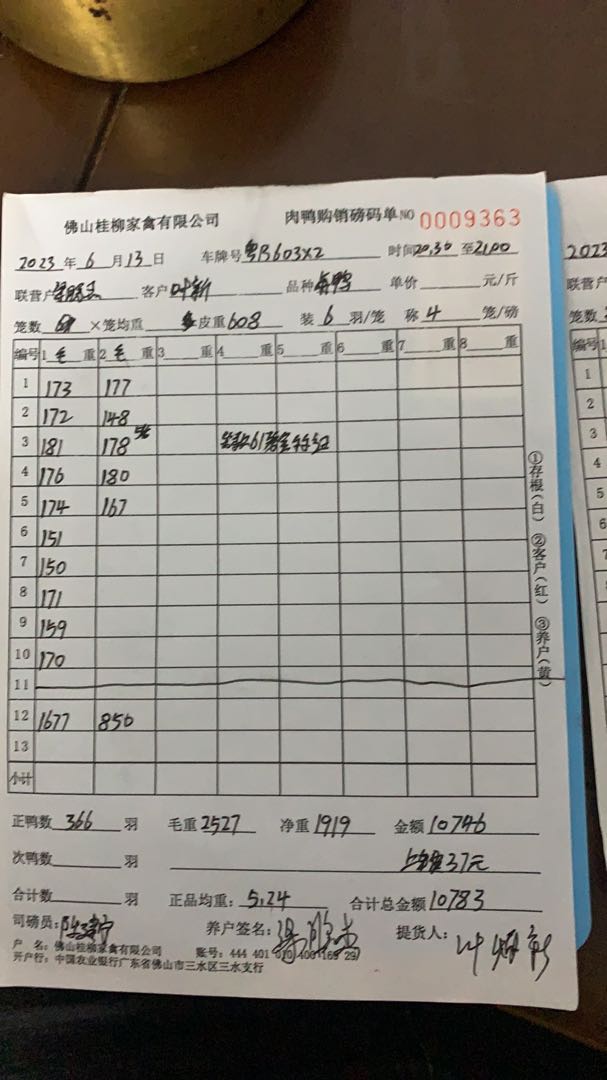 佛山桂柳家禽有限公司 肉鸭购销磅码单 NO 0009363
2023 年 6 月 13 日 车牌号 粤B603X2 时间 20:30 至 21:00
联营户 客户 叶新 品种 单价 元/斤
笼数 61 ×笼均重 皮重 608 装 6 羽/笼 称 4 笼/磅
编号 1 毛 重 2 毛 重 3 重 4 重 5 重 6 重 7 重 8 重
1 173 177
2 172 148
3 181 178
4 176 180
5 174 167
6 151
7 150
8 171
9 159
10 170
11
12 1677 850
13
小计
①存根(白) ②客户(红) ③养户(黄)
正鸭数 366 羽 毛重 2527 净重 1919 金额 10746
次鸭数 羽 37元
合计数 羽 正品均重: 5.24 合计总金额 10783
司磅员: 养户签名: 提货人:
户 名: 佛山桂柳家禽有限公司 账号: 444 401 010 400 169 29
开户行: 中国农业银行广东省佛山市三水区三水支行
2023
联营户
笼数
编号 1
1
2
3
4
5
6
7
8